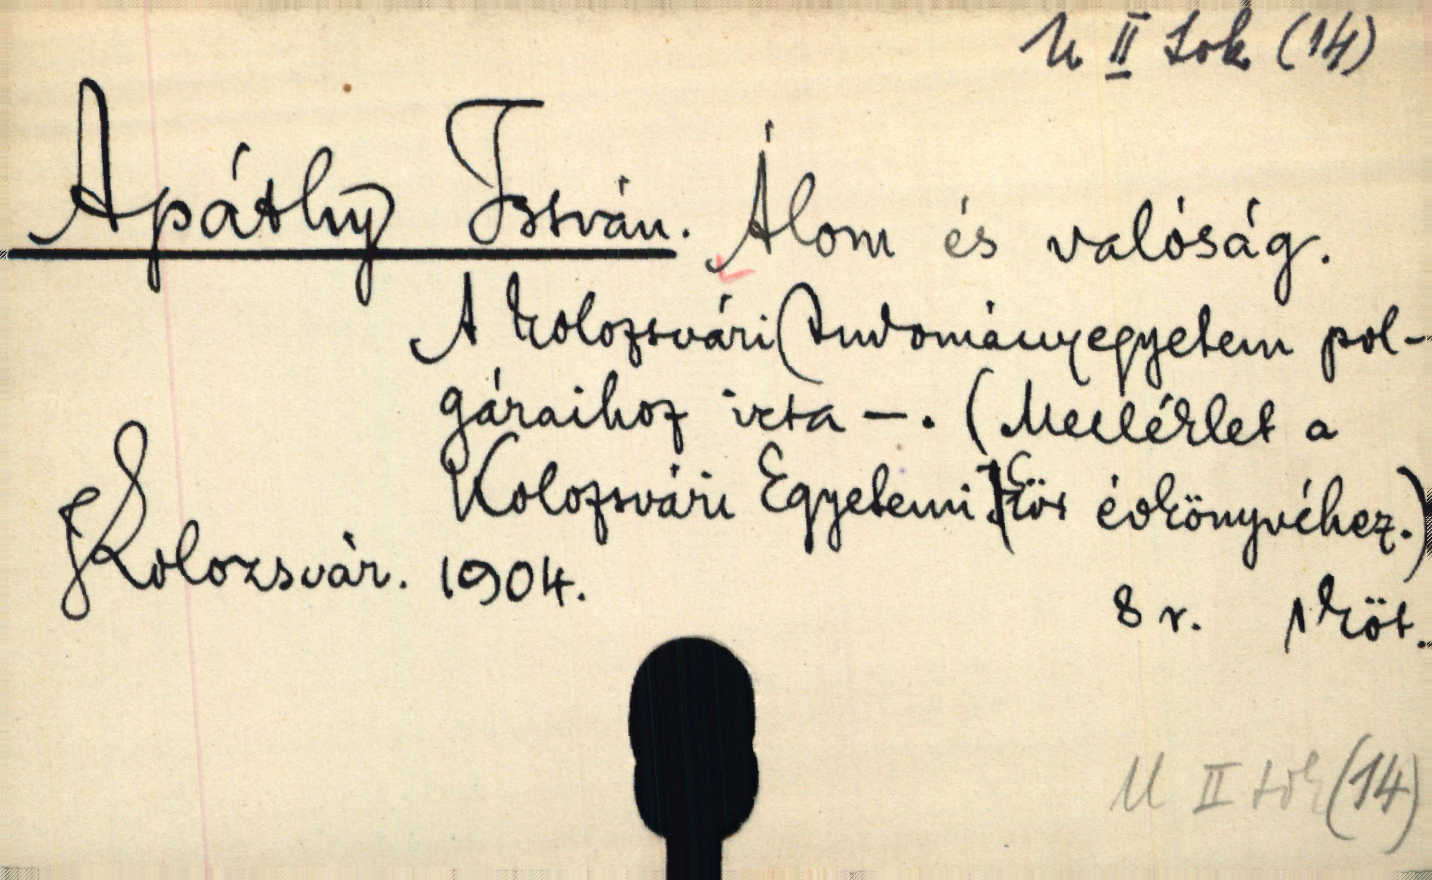 U II tok (14)
Apáthy István. Álom és valóság.
A kolozsvári tudományegyetem pol-
gáraihoz irta —. (Melléklet a
Kolozsvári Egyetemi Kör évkönyvéhez.)
Kolozsvár. 1904.
8 r. 1 köt.
U II tok (14)